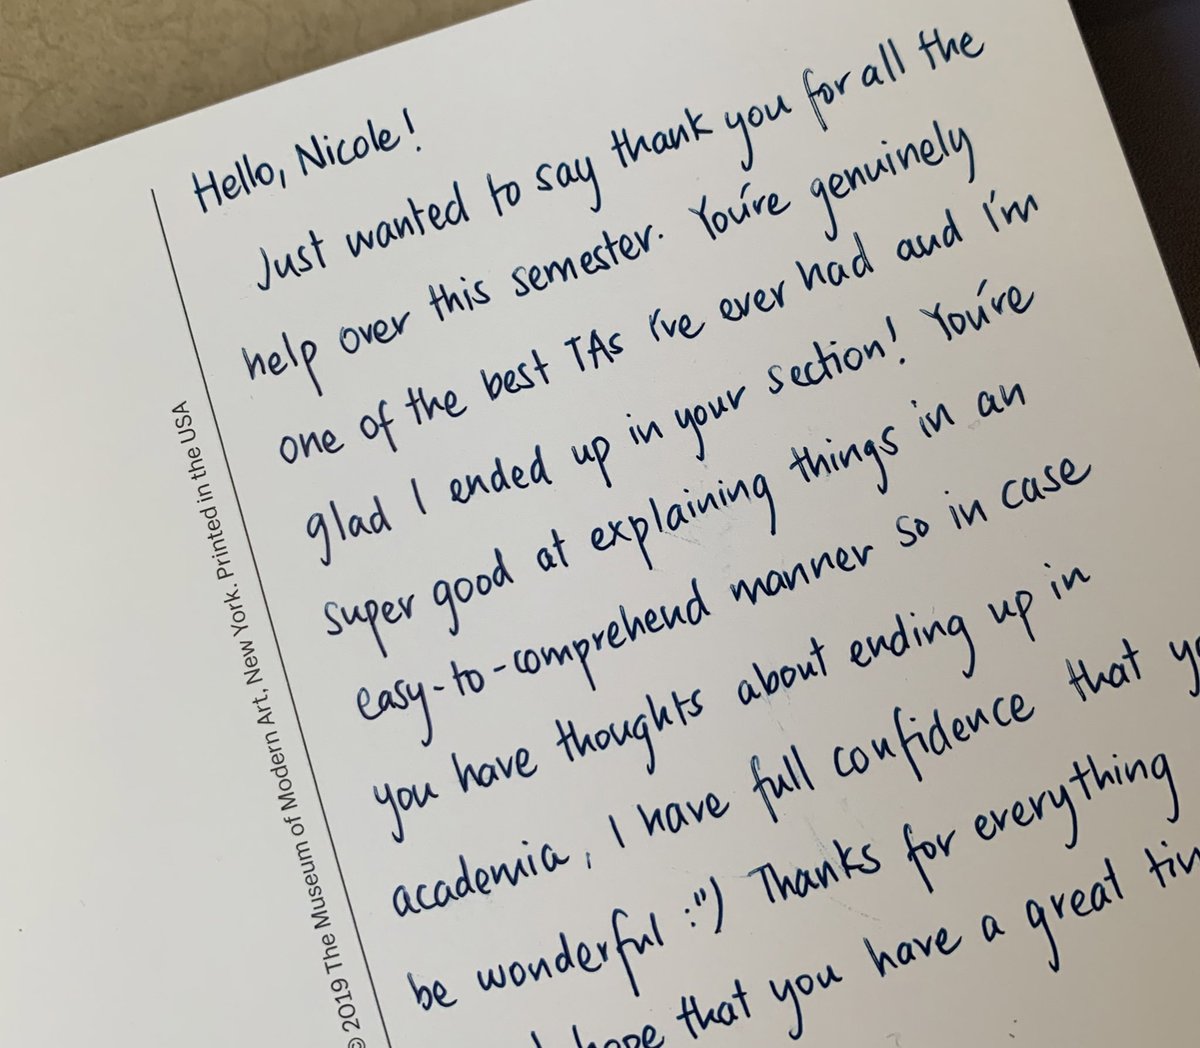 Hello, Nicole!
Just wanted to say thank you for all the
help over this semester. You're genuinely
one of the best TAs I've ever had and I'm
glad I ended up in your section! You're
super good at explaining things in an
easy-to-comprehend manner so in case
you have thoughts about ending up in
academia, I have full confidence that
be wonderful :") Thanks for everything
hope that you have a great
© 2019 The Museum of Modern Art, New York. Printed in the USA